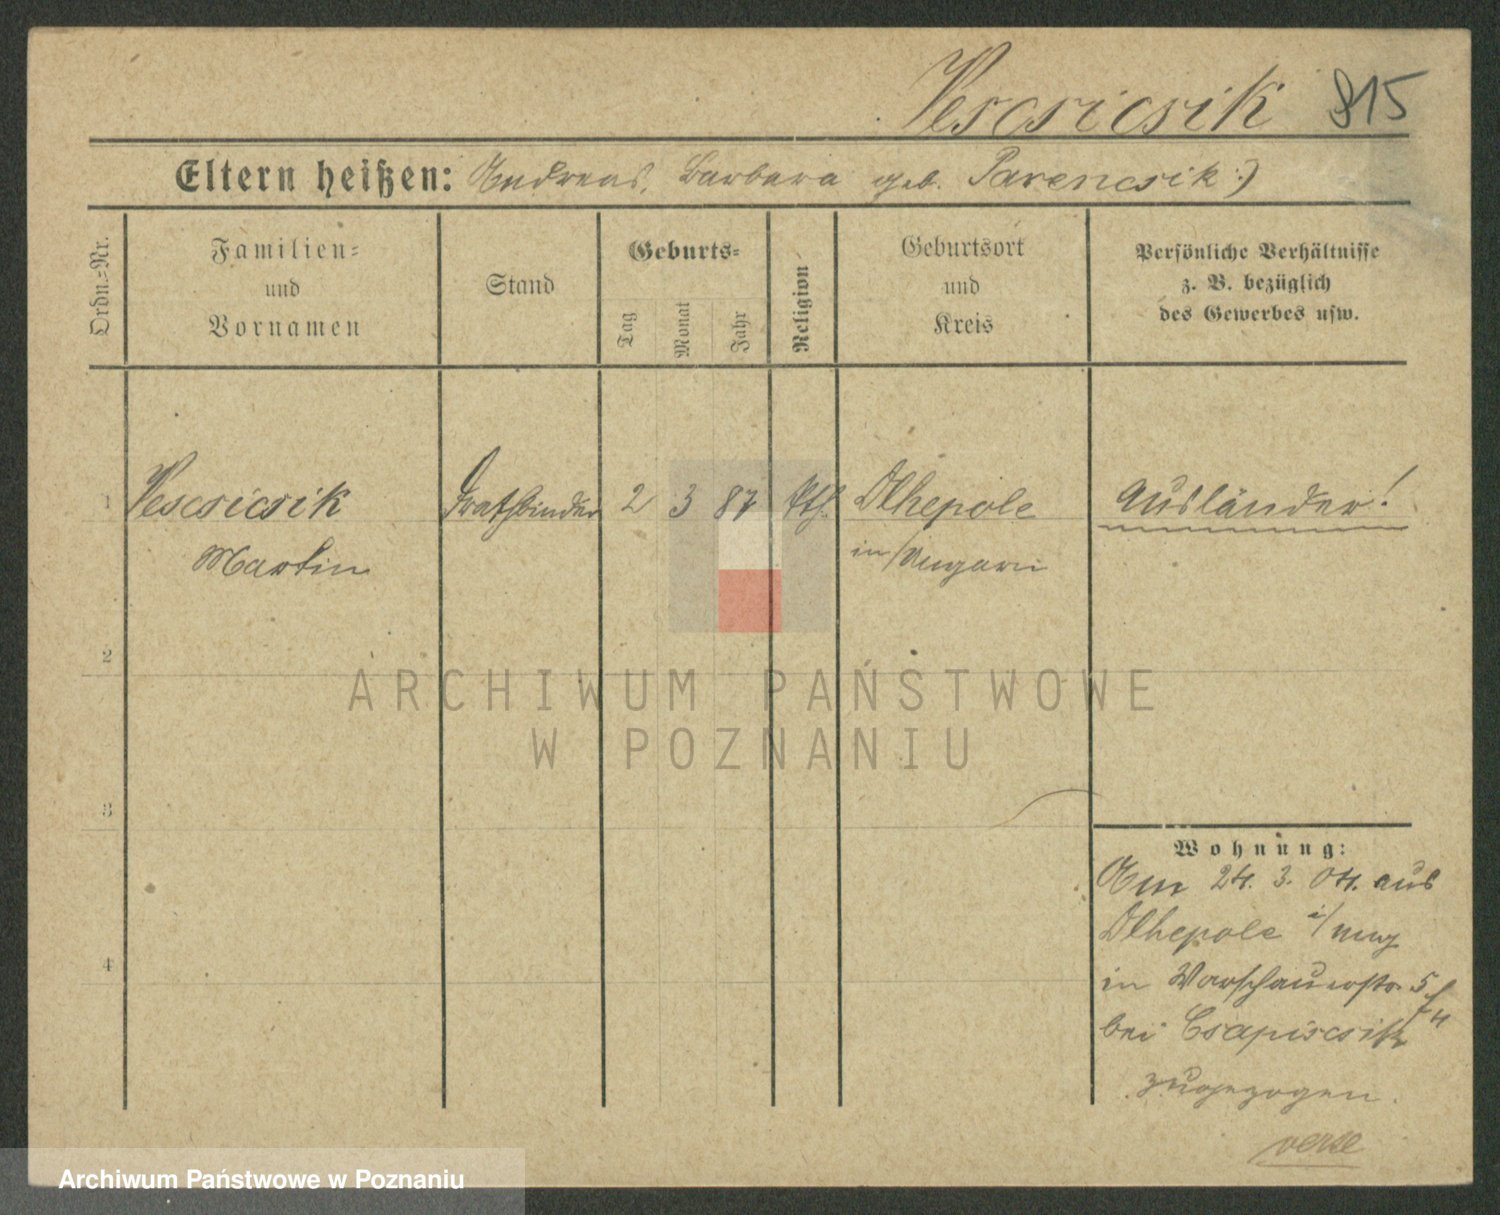 Vescsicsik 815
Eltern heißen: Andreas, Barbara geb. Parencsik.)
Ordn.-Nr.
Familien-
und
Vornamen
Stand
Geburts-
Tag
Monat
Jahr
Religion
Geburtsort
und
Kreis
Persönliche Verhältnisse
z. B. bezüglich
des Gewerbes usw.
1 Vescsicsik Drathbinder 2 3 87 kth. Olhepole Ausländer!
Martin in/Ungarn
2
ARCHIWUM PAŃSTWOWE
W POZNANIU
3
Wohnung:
Am 24. 3. 04. aus
Olhepole i/Ung
in Warschauerstr. 5
4
bei Csapiscsik
zugezogen.
Archiwum Państwowe w Poznaniu